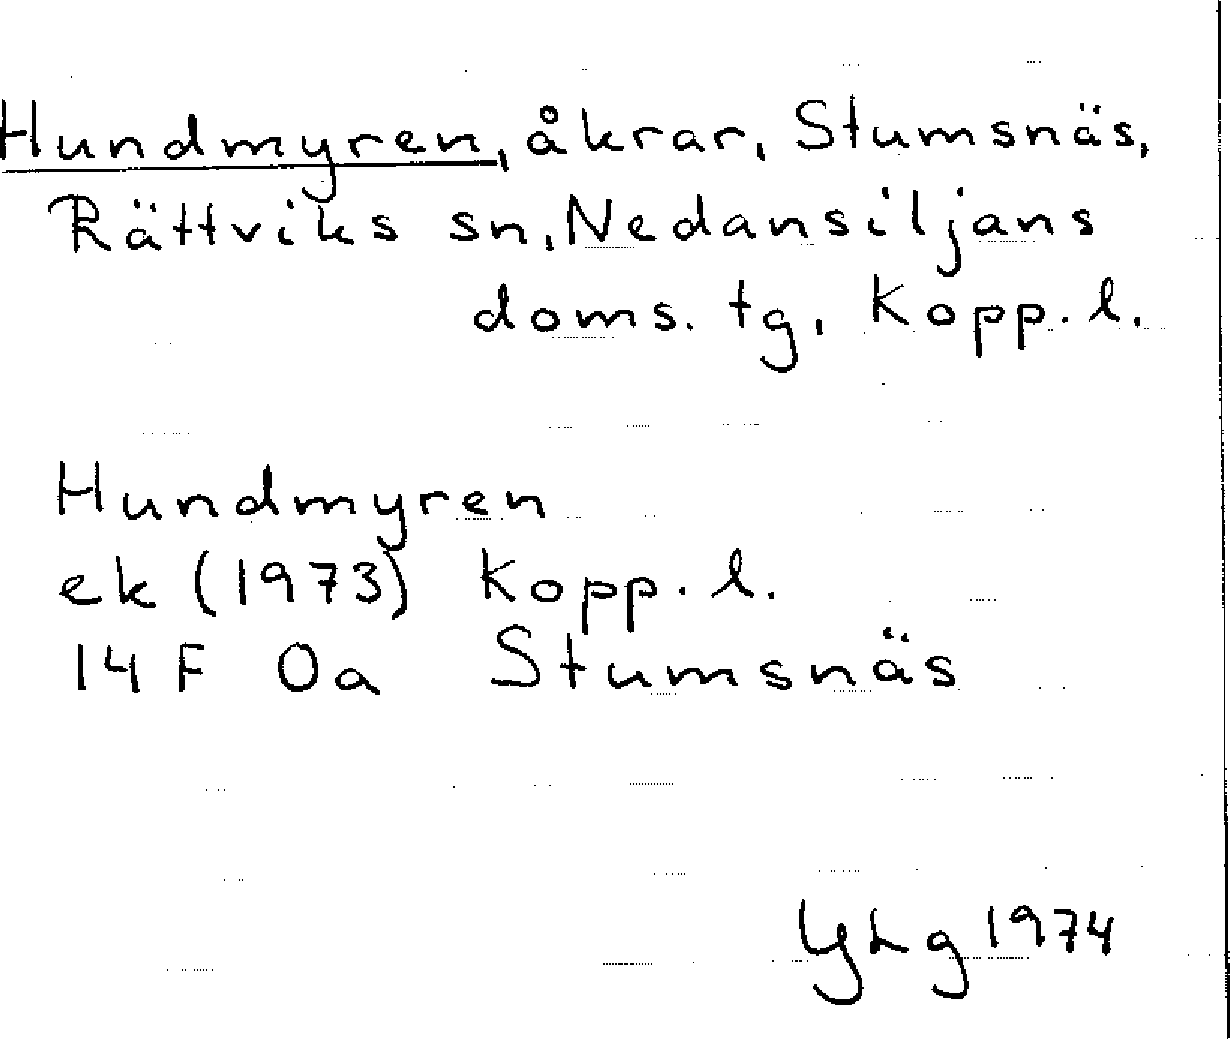 Hundmyren, åkrar, Stumsnäs,
Rättviks sn, Nedansiljans
doms. tg, Kopp. l.
Hundmyren
ek (1973) Kopp. l.
14 F 0a Stumsnäs
YLg 1974